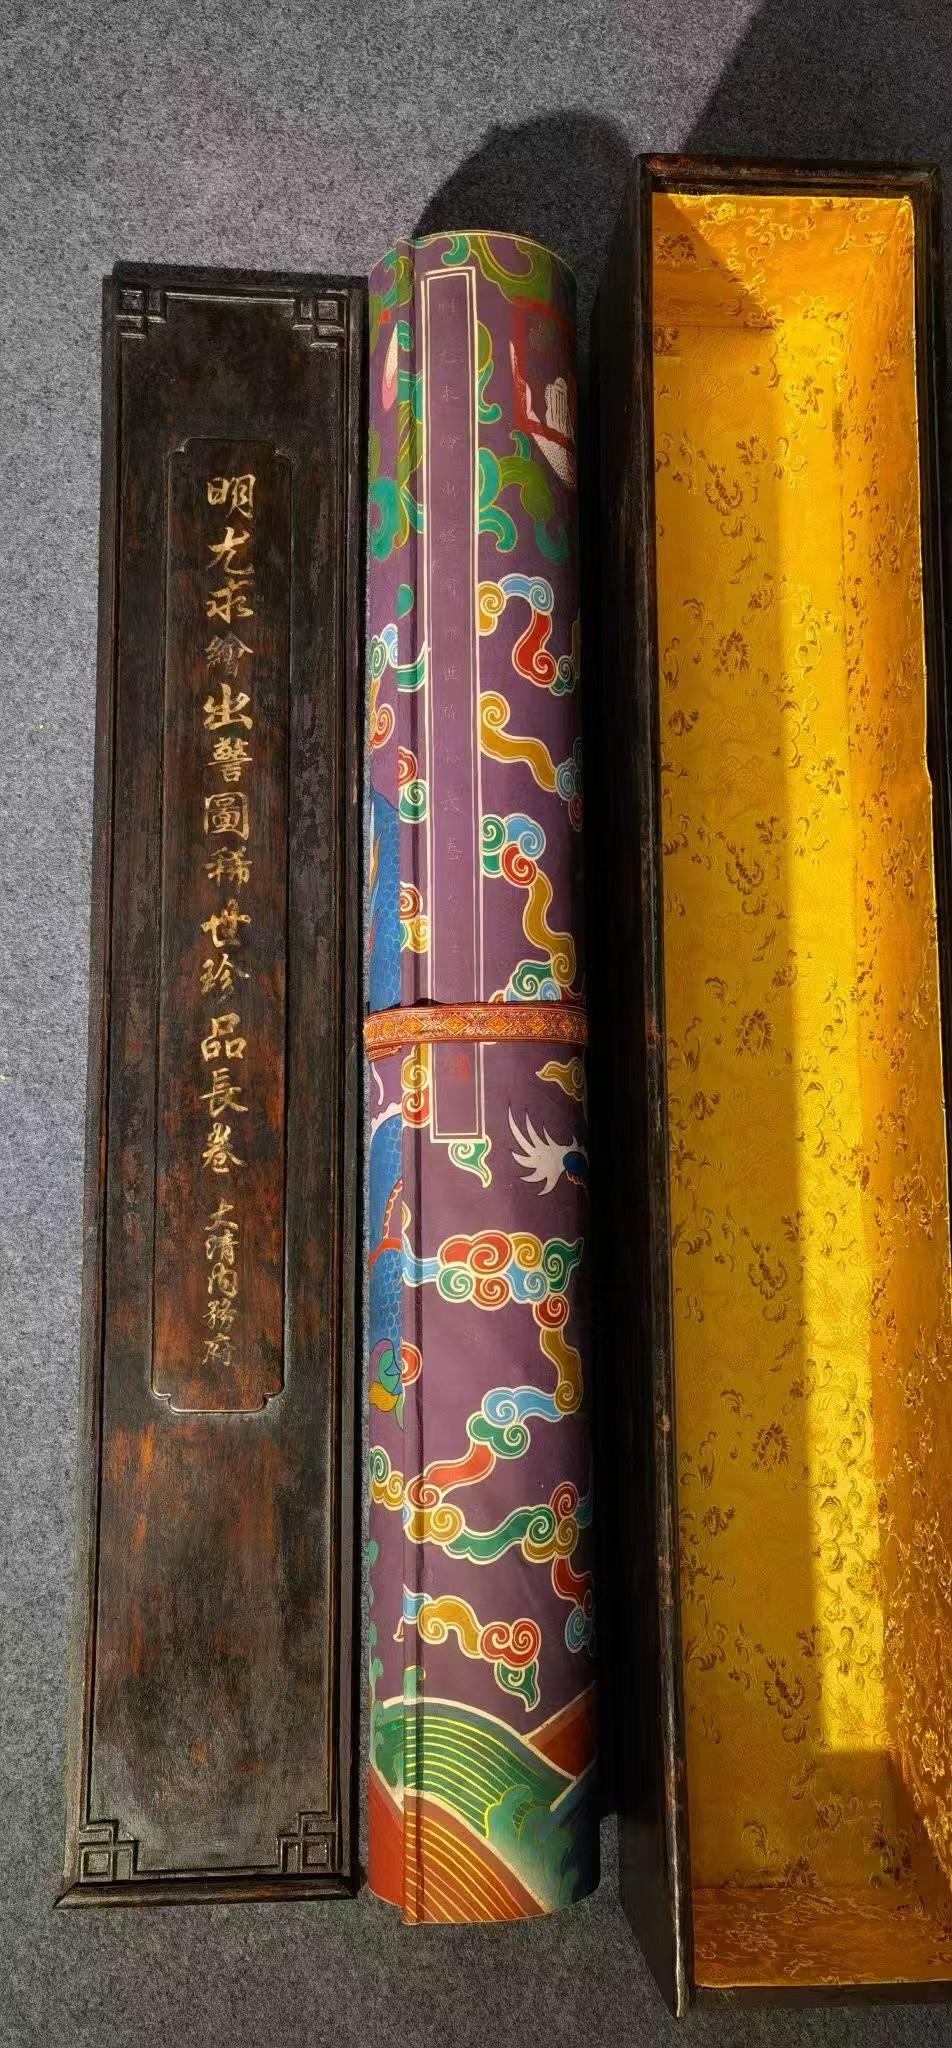 明尤求繪出警圖稀世珍品長卷 大清內務府
明尤求繪出警圖稀世珍品長卷